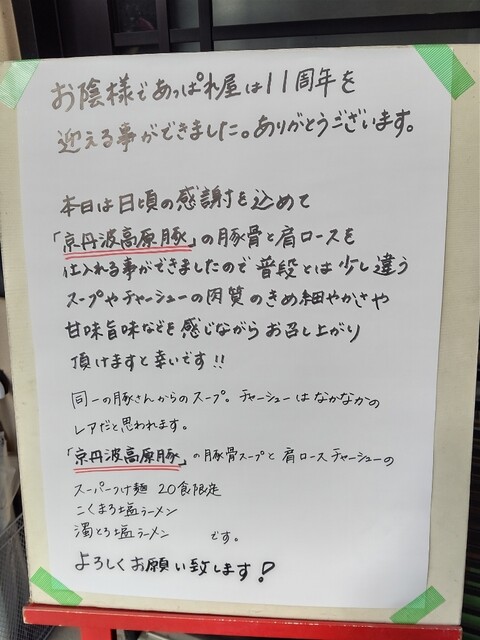 お陰様であっぱれ屋は11周年を
迎える事ができました。ありがとうございます。
本日は日頃の感謝を込めて
「京丹波高原豚」の豚骨と肩ロースを
仕入れる事ができましたので普段とは少し違う
スープやチャーシューの肉質のきめ細やかさや
甘味旨味などを感じながらお召し上がり
頂けますと幸いです!!
同一の豚さんからのスープ。チャーシューはなかなかの
レアだと思われます。
「京丹波高原豚」の豚骨スープと肩ロースチャーシューの
スーパーつけ麺 20食限定
こくまろ塩ラーメン
濁とろ塩ラーメン です。
よろしくお願い致します!